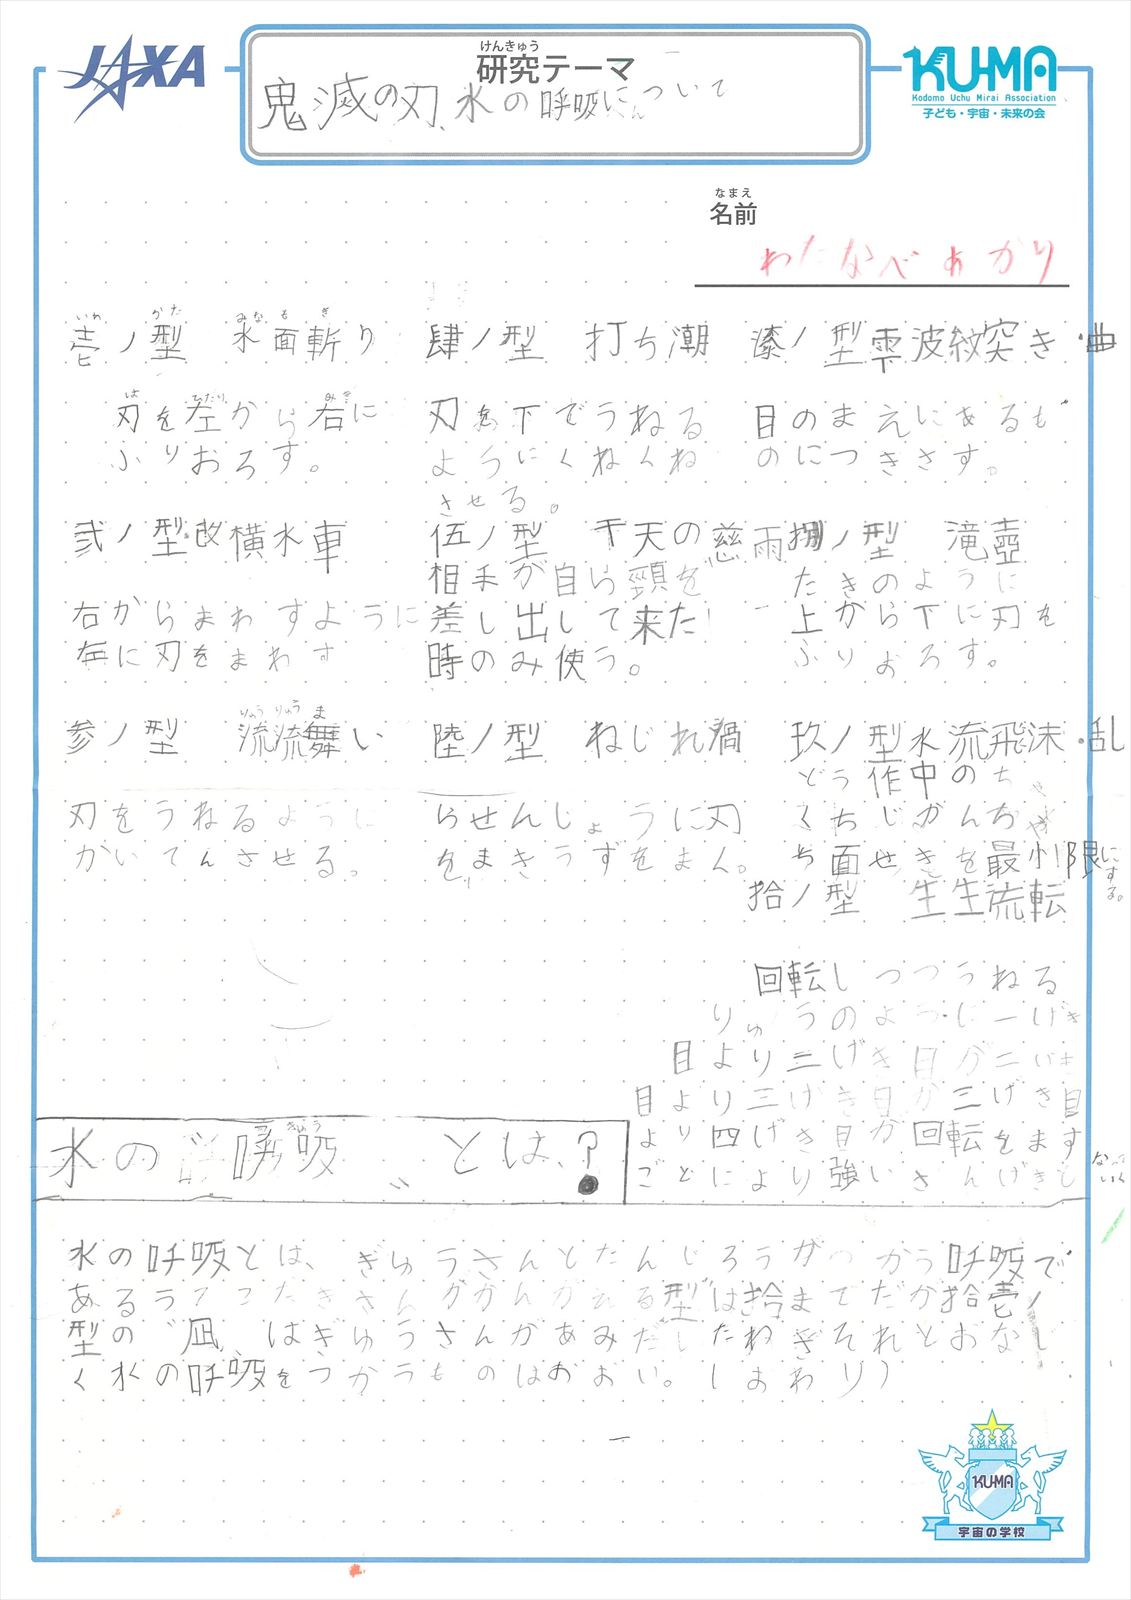 JAXA
けんきゅう
研究テーマ
鬼滅の刃、水の呼吸について
KU-MA
Kodomo Uchu Mirai Association
子ども・宇宙・未来の会
なまえ
名前
わたなべあかり
いち かた みなも ぎ
壱ノ型 水面斬り
は ひだり みぎ
刃を左から右に
ふりおろす。
弐ノ型 改 横水車
右からまわすように
年に刃をまわす
りゅうりゅう ま
参ノ型 流流舞い
刃をうねるように
かいてんさせる。
肆ノ型 打ち潮
刃を下でうねる
ようにくねくね
させる。
伍ノ型 干天の慈雨
相手が自ら頸を
差し出して来た
時のみ使う。
陸ノ型 ねじれ渦
らせんじょうに刃
をまきうずをまん。
漆ノ型 雫波紋突き・曲
目のまえにあるも
のにつきさす。
捌ノ型 滝壺
たきのように
上から下に刃を
ふりおろす。
玖ノ型 水流飛沫・乱
どう作中のちゃ
くちじかんちゃ
ち面せきを最小限にする。
拾ノ型 生生流転
回転しつつうねる
りゅうのように一げき
目より二げき目が二げき
目より三げき目が三げき目
より四げき目が回転をます
ごとにより強いざんげきと
なっていく
水の呼吸 とは、?
きゅう
水の呼吸とは、ぎゆうさんとたんじろうがつかう呼吸で
あるうろこだきさんがかんがえる型は拾までだが拾壱ノ
型の"凪"はぎゆうさんがあみだしたわざそれとおなし
く水の呼吸をつかうものはおおい。(おわり)
KU-MA
宇宙の学校